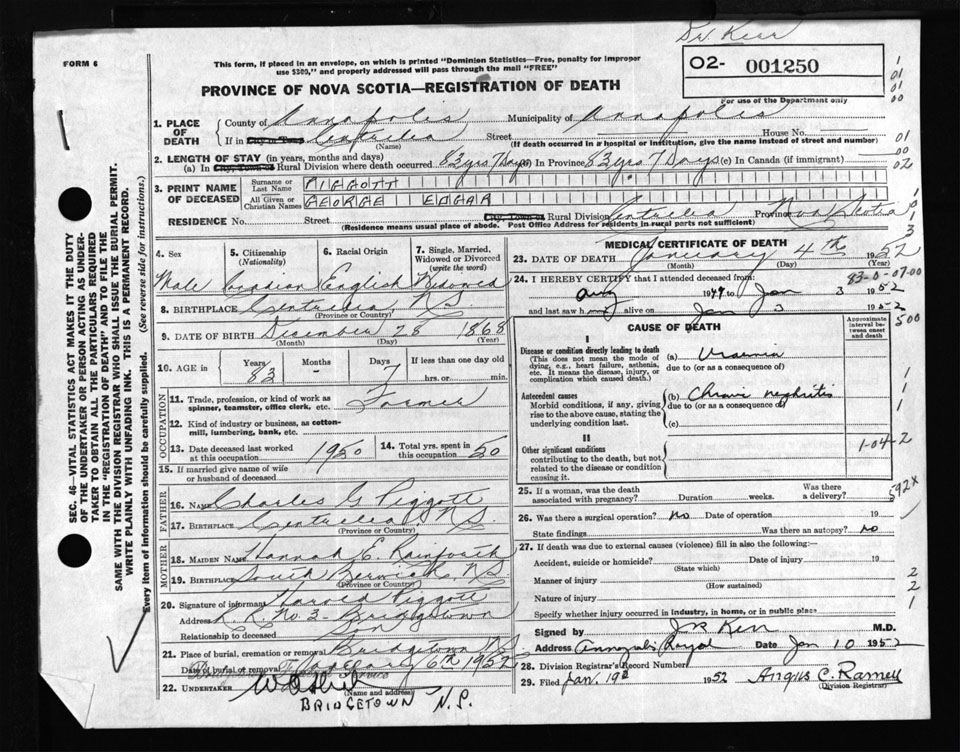 Dr. Kerr
FORM 6
This form, if placed in an envelope, on which is printed "Dominion Statistics—Free, penalty for improper
use $300," and properly addressed will pass through the mail "FREE"
02- 001250
For use of the Department only
PROVINCE OF NOVA SCOTIA—REGISTRATION OF DEATH
1. PLACE OF DEATH
County of Annapolis Municipality of Annapolis
If in City or Town Centrelea (Name) Street House No.
(If death occurred in a hospital or institution, give the name instead of street and number)
2. LENGTH OF STAY (in years, months and days)
(a) In City, Town or Rural Division where death occurred 83 yrs 7 Days (b) In Province 83 yrs 7 Days (c) In Canada (if immigrant)
3. PRINT NAME OF DECEASED
Surname or Last Name PIGGOTT
All Given or Christian Names GEORGE EDGAR
RESIDENCE No. Street City, Town or Rural Division Centrelea Province Nova Scotia
(Residence means usual place of abode. Post Office Address for residents in rural parts not sufficient)
4. Sex
Male
5. Citizenship (Nationality)
6. Racial Origin
English
7. Single, Married, Widowed or Divorced (write the word)
Widowed
8. BIRTHPLACE Centrelea, N.S.
(Province or Country)
9. DATE OF BIRTH December 28 1868
(Month) (Day) (Year)
10. AGE in Years 83 Months - Days 7 If less than one day old
hrs. or min.
OCCUPATION
11. Trade, profession, or kind of work as spinner, teamster, office clerk, etc. Farmer
12. Kind of industry or business, as cotton-mill, lumbering, bank, etc.
13. Date deceased last worked at this occupation 1950
14. Total yrs. spent in this occupation 50
15. If married give name of wife or husband of deceased
FATHER
16. NAME Charles G Piggott
17. BIRTHPLACE Centrelea, N.S.
(Province or Country)
MOTHER
18. MAIDEN NAME Hannah E. Rainforth
19. BIRTHPLACE South Berwick, N.S.
(Province or Country)
20. Signature of informant Harold Piggott
Address R.R. No. 3 - Bridgetown
Relationship to deceased Son
21. Place of burial, cremation or removal Bridgetown N.S.
Date of burial or removal January 6th 1952
22. UNDERTAKER
(Name and address)
BRIDGETOWN N.S.
MEDICAL CERTIFICATE OF DEATH
23. DATE OF DEATH January 4th 1952
(Month) (Day) (Year)
83-0-07-00
24. I HEREBY CERTIFY that I attended deceased from:
Aug 1949 to Jan 3 1952
and last saw h alive on Jan 3 1952
CAUSE OF DEATH
Approximate interval between onset and death
I
Disease or condition directly leading to death
(This does not mean the mode of dying, e.g., heart failure, asthenia, etc. It means the disease, injury, or complication which caused death.)
(a) Uraemia
due to (or as a consequence of)
Antecedent causes
Morbid conditions, if any, giving rise to the above cause, stating the underlying condition last.
(b) Chronic nephritis
due to (or as a consequence of)
(c)
II
Other significant conditions
contributing to the death, but not related to the disease or condition causing it.
1-04-2
592x
25. If a woman, was the death associated with pregnancy? Duration weeks. Was there a delivery?
26. Was there a surgical operation? No Date of operation 19
State findings Was there an autopsy? No
27. If death was due to external causes (violence) fill in also the following:—
Accident, suicide or homicide? Date of injury 19
(State which)
Manner of injury
(How sustained)
Nature of injury
Specify whether injury occurred in industry, in home, or in public place
Signed by Kerr M.D.
Address Annapolis Royal Date Jan 10 1952
28. Division Registrar's Record Number
29. Filed Jan. 19th 1952 Angus C. Ramell
(Division Registrar)
SEC. 46—VITAL STATISTICS ACT MAKES IT THE DUTY
OF THE UNDERTAKER OR PERSON ACTING AS UNDER-
TAKER TO OBTAIN ALL THE PARTICULARS REQUIRED
IN THE "REGISTRATION OF DEATH" AND TO FILE THE
SAME WITH THE DIVISION REGISTRAR WHO SHALL ISSUE THE BURIAL PERMIT.
WRITE PLAINLY WITH UNFADING INK. THIS IS A PERMANENT RECORD.
Every item of information should be carefully supplied. (See reverse side for instructions.)